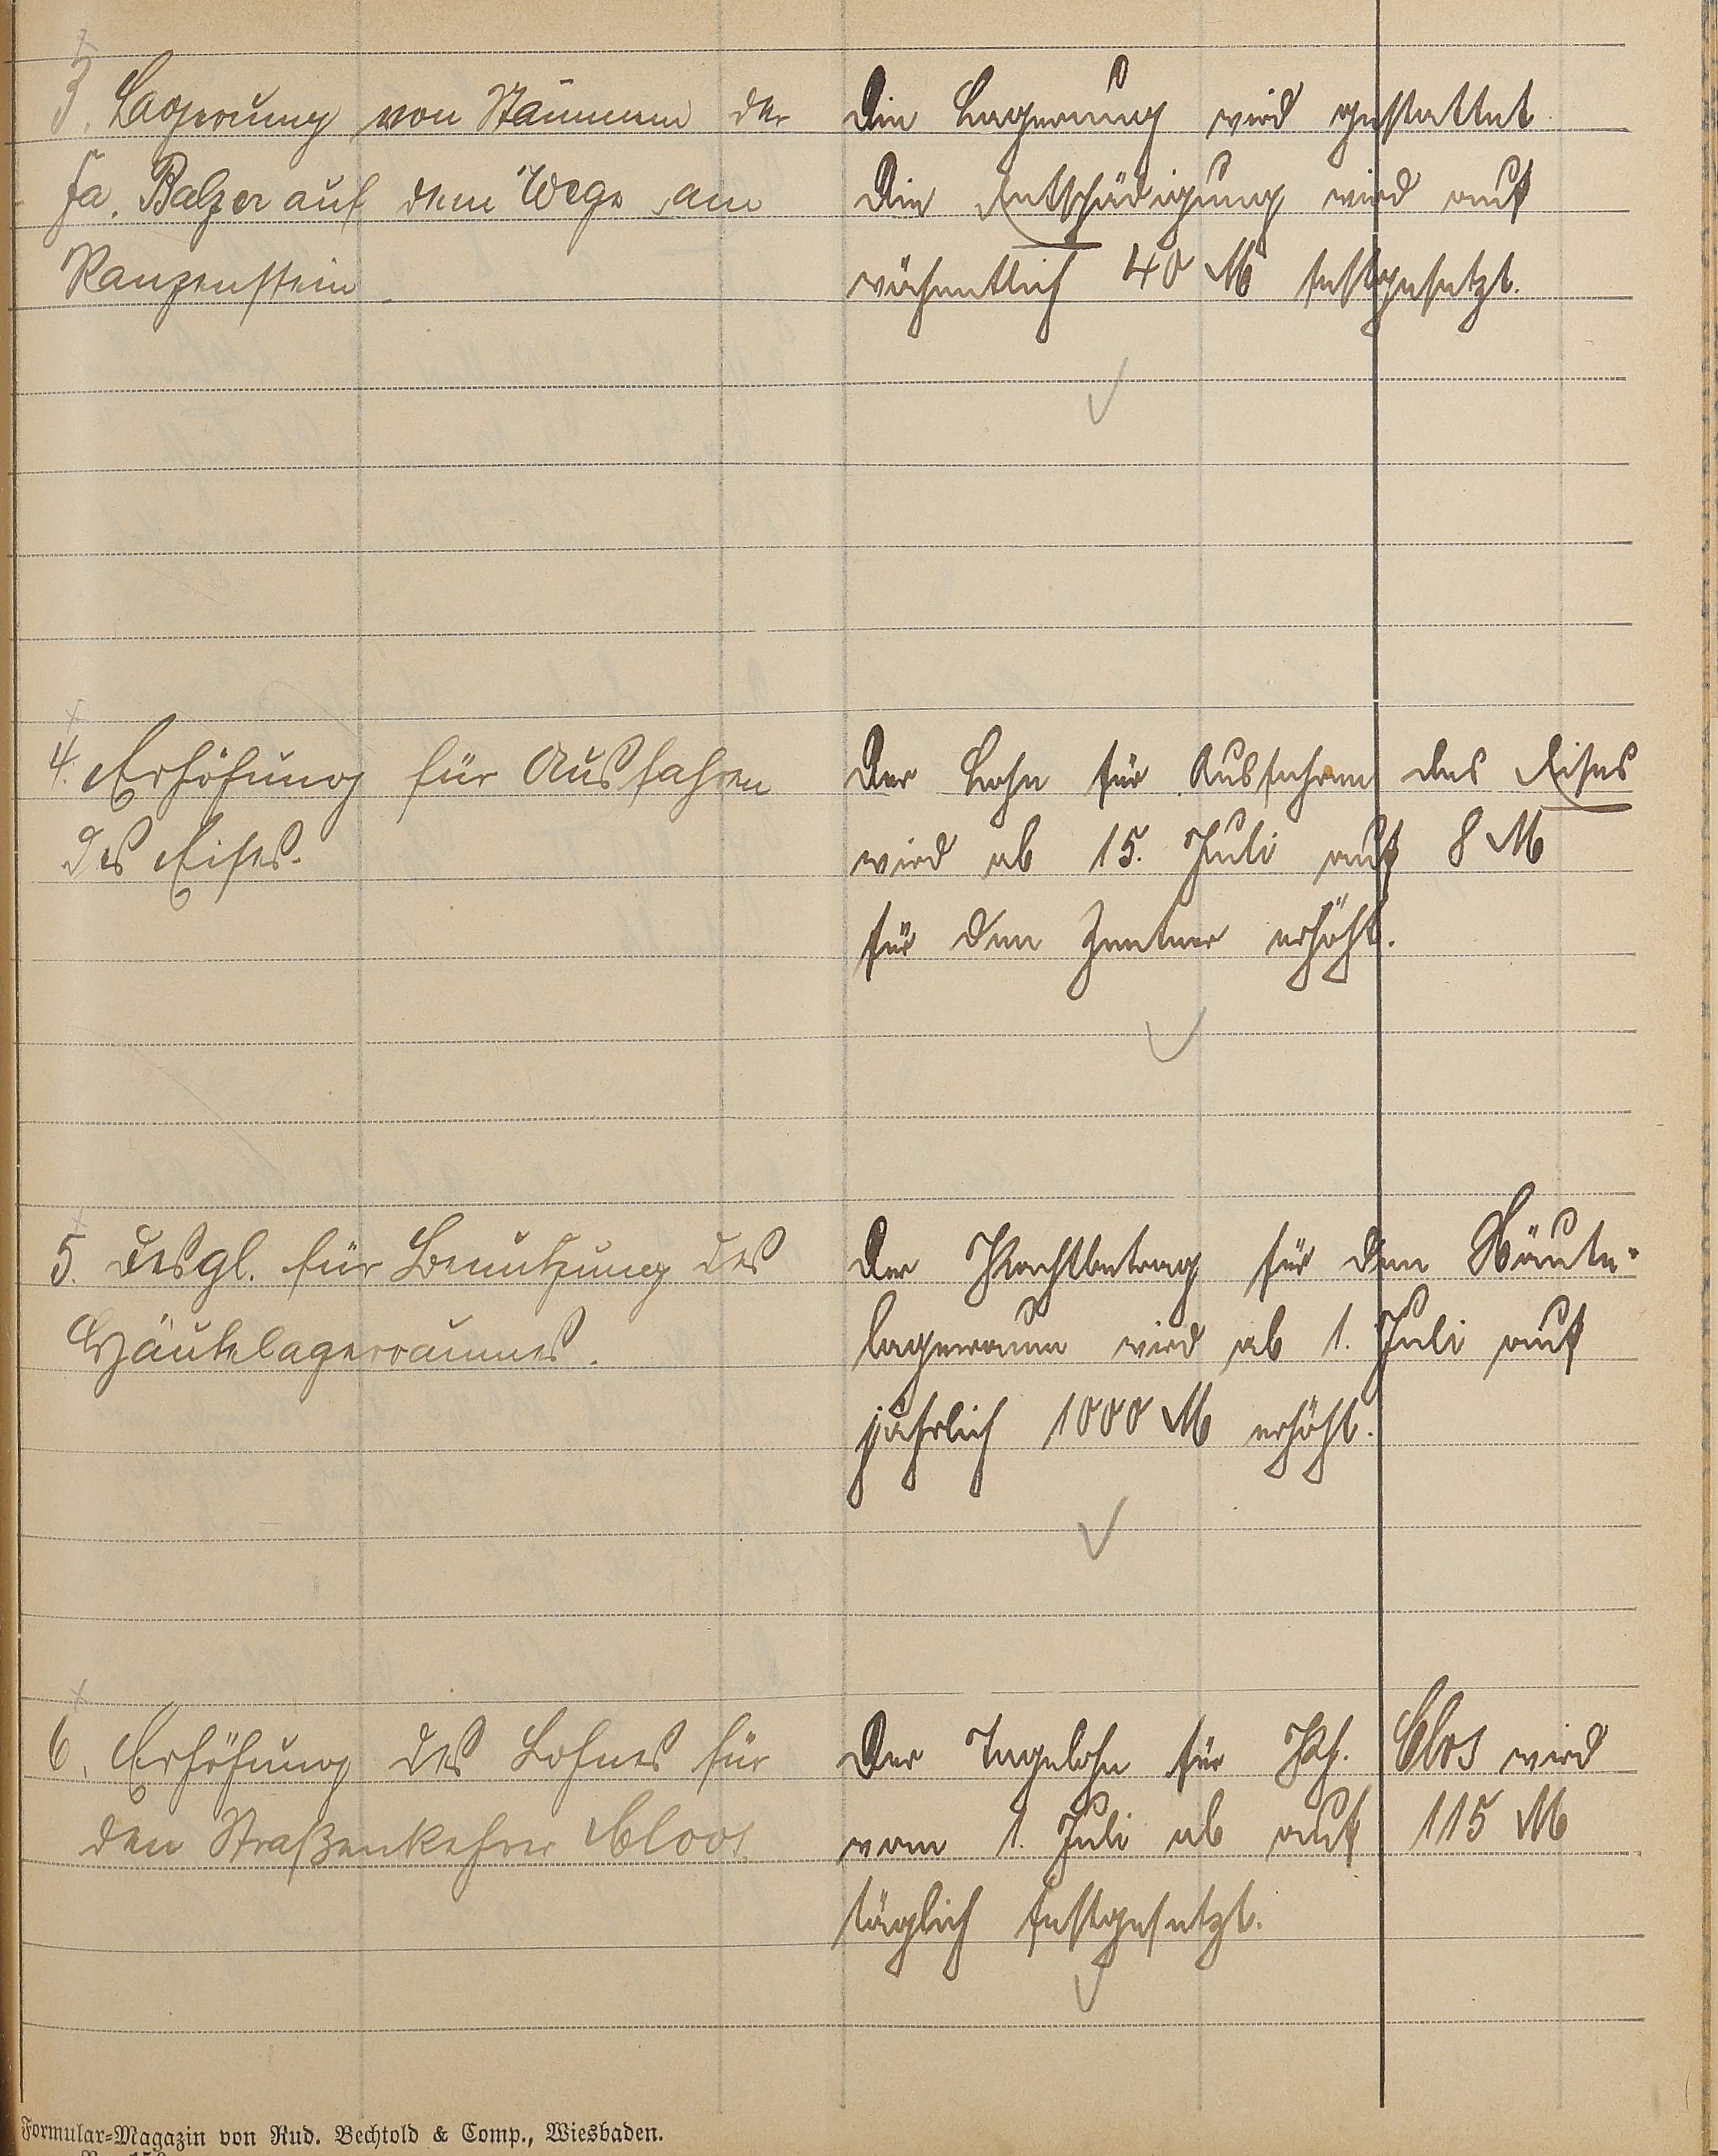 3. Lagerung von Stämmen der
Fa. Balzer auf dem Wege am
Ranzenstein.
Die Lagerung wird gestattet.
Die Entschädigung wird auf
wöchentlich 40 M festgesetzt.
4. Erhöhung für Ausfahren
des Eises.
Der Lohn für Ausfahren des Eises
wird ab 15. Juli auf 8 M
für den Zentner erhöht.
5. Desgl. für Benutzung des
Häutelagerraumes.
Der Pachtbetrag für den Häute-
lagerraum wird ab 1. Juli auf
jährlich 1000 M erhöht.
6. Erhöhung des Lohnes für
den Straßenkehrer Cloos.
Der Tagelohn für Clos wird
vom 1. Juli ab auf 115 M
täglich festgesetzt.
Formular-Magazin von Rud. Bechtold & Comp., Wiesbaden.